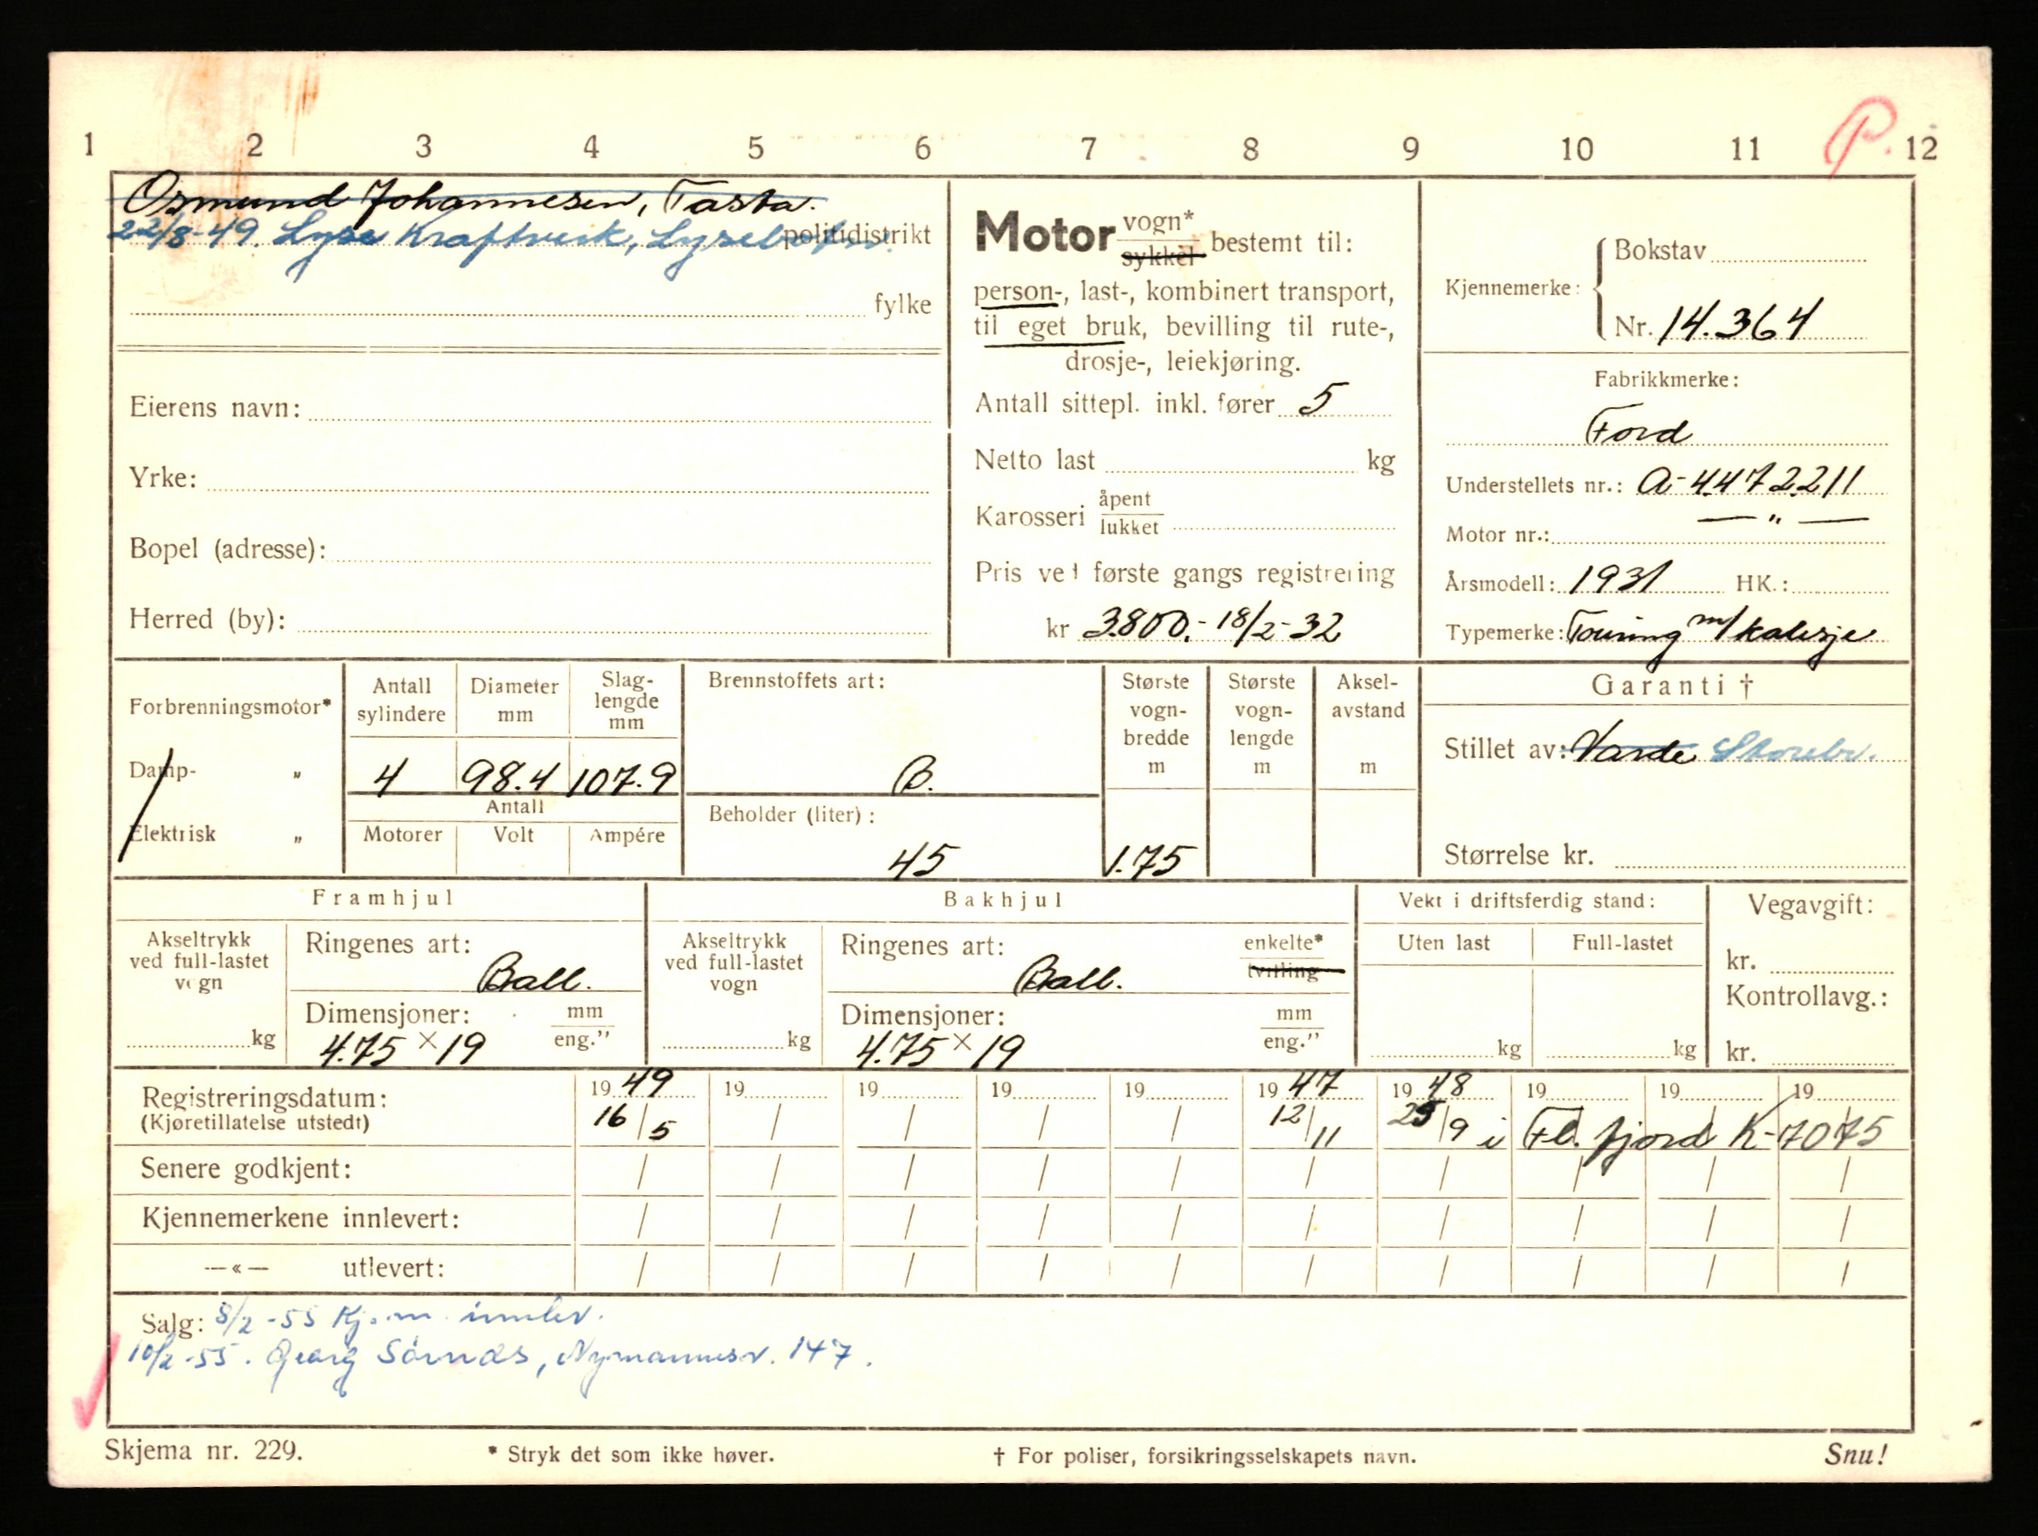 1 2 3 4 5 6 7 8 9 10 11 12
P.
Osmund Johannesen, Tasta.
22/8-49. Lyse Kraftverk, Lysebotn. politidistrikt
fylke
Eierens navn:
Yrke:
Bopel (adresse):
Herred (by):
Motor vogn* sykkel bestemt til:
person-, last-, kombinert transport,
til eget bruk, bevilling til rute-,
drosje-, leiekjøring.
Antall sittepl. inkl. fører 5
Netto last kg
Karosseri åpent lukket
Pris ved første gangs registrering
kr 3.800.- 18/2-32
Kjennemerke: Bokstav
Nr. 14.364
Fabrikkmerke:
Ford
Understellets nr.: A-4.472.211
Motor nr.: — " —
Årsmodell: 1931 HK.:
Typemerke: Touring m/kalesje
Forbrenningsmotor*
Damp- "
Elektrisk "
Antall sylindere
Diameter mm
Slag-lengde mm
4 98.4 107.9
Antall
Motorer Volt Ampére
Brennstoffets art:
B.
Beholder (liter):
45
Største vogn-bredde m
1.75
Største vogn-lengde m
Aksel-avstand m
Garanti †
Stillet av: Varde Storebr.
Størrelse kr.
Framhjul
Akseltrykk ved full-lastet vogn
kg
Ringenes art:
Ball.
Dimensjoner: mm eng."
4.75 x 19
Bakhjul
Akseltrykk ved full-lastet vogn
kg
Ringenes art: enkelte* tvilling
Ball.
Dimensjoner: mm eng."
4.75 x 19
Vekt i driftsferdig stand:
Uten last Full-lastet
kg kg
Vegavgift:
kr.
Kontrollavg.:
kr.
Registreringsdatum: 19 49 19 19 19 19 19 47 19 48 19 19 19
(Kjøretillatelse utstedt) 16/5 / / / / 12/11 25/9 i Fl. fjord K-7075
Senere godkjent: / / / / / / / / / /
Kjennemerkene innlevert: / / / / / / / / / /
—«— utlevert: / / / / / / / / / /
Salg: 8/2-55 Kj.m. innlev.
10/2-55. Georg Sörnes, Nymannesv. 147.
Skjema nr. 229.
* Stryk det som ikke høver.
† For poliser, forsikringsselskapets navn.
Snu!